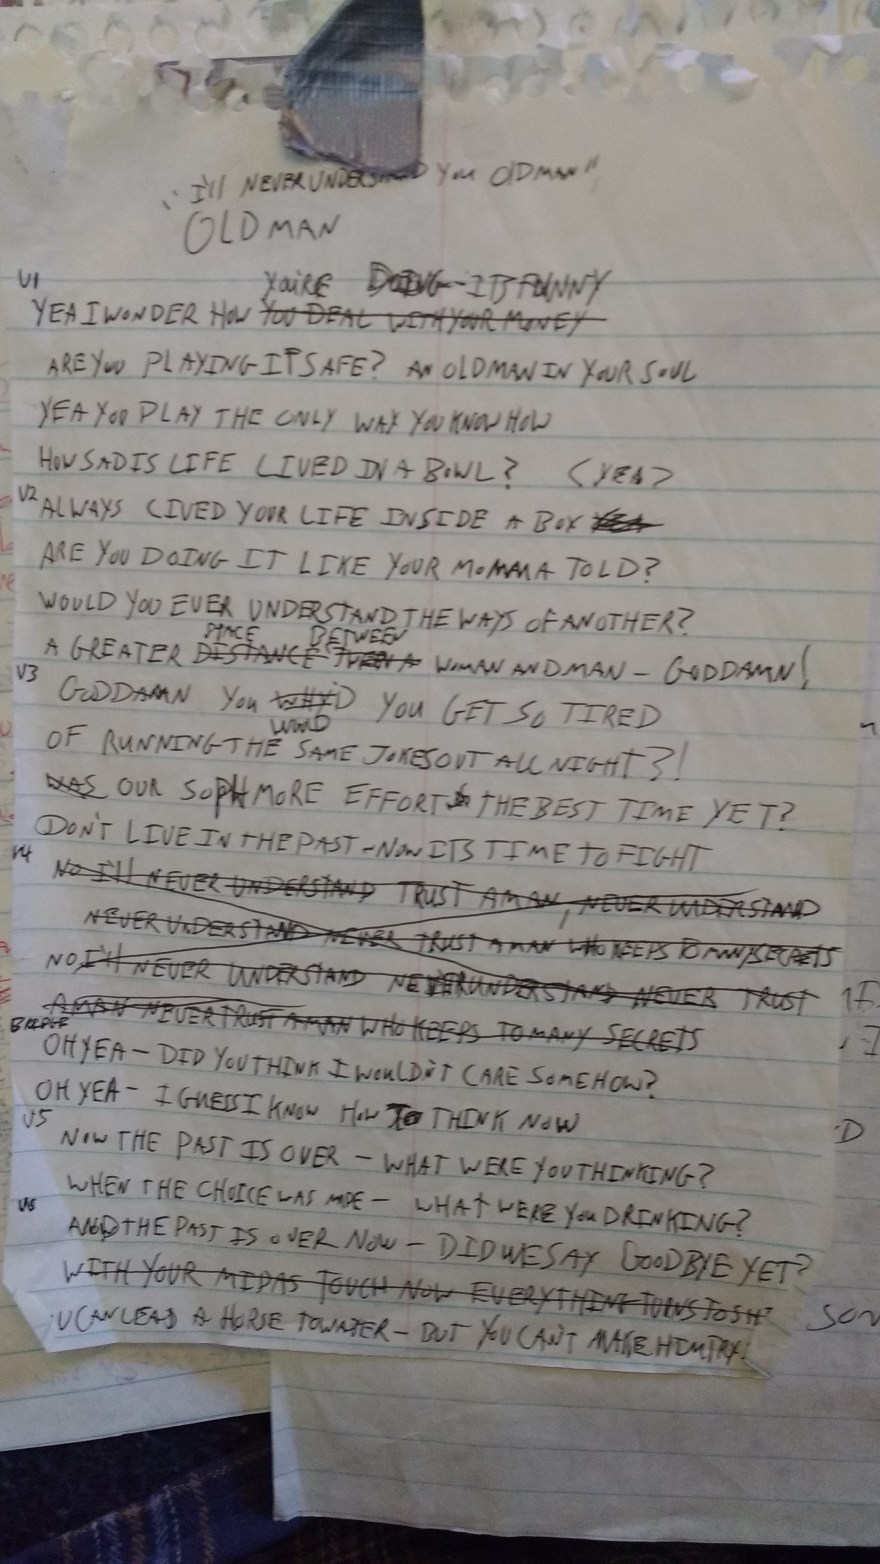 "I'll NEVER UNDERSTAND You OlDMAN"
OLDMAN
V1
YOU'RE DOING - ITS FUNNY
YEA I WONDER HOW YOU DEAL WITH YOUR MONEY
ARE YOU PLAYING IT SAFE? AN OLD MAN IN YOUR SOUL
YEA YOU PLAY THE ONLY WAY YOU KNOW HOW
HOW SAD IS LIFE LIVED IN A BOWL? (YEA)
V2 ALWAYS LIVED YOUR LIFE INSIDE A BOX YEA
ARE YOU DOING IT LIKE YOUR MOMMA TOLD?
WOULD YOU EVER UNDERSTAND THE WAYS OF ANOTHER?
SPACE BETWEEN
A GREATER DISTANCE TWEEN A WOMAN AND MAN - GODDAMN!
V3
GODDAMN YOU WHY'D YOU GET SO TIRED
OF RUNNING THE SAME JOKES OUT ALL NIGHT?!
WAS OUR SOPHMORE EFFORT THE BEST TIME YET?
DON'T LIVE IN THE PAST - NOW ITS TIME TO FIGHT
V4
NO I'll NEVER UNDERSTAND TRUST A MAN, NEVER UNDERSTAND
NEVER UNDERSTAND NEVER TRUST A MAN WHO KEEPS TO MANY SECRETS
NO, I'll NEVER UNDERSTAND NEVER UNDERSTAND NEVER TRUST
A MAN NEVER TRUST A MAN WHO KEEPS TO MANY SECRETS
BRIDGE
OH YEA - DID YOU THINK I WOULDN'T CARE SOMEHOW?
OH YEA - I GUESS I KNOW HOW TO THINK NOW
V5
NOW THE PAST IS OVER - WHAT WERE YOU THINKING?
WHEN THE CHOICE WAS MDE - WHAT WERE YOU DRINKING?
V6
AND THE PAST IS OVER NOW - DID WE SAY GOODBYE YET?
WITH YOUR MIDAS TOUCH NOW EVERYTHING TURNS TO SH
U CAN LEAD A HORSE TO WATER - BUT YOU CAN'T MAKE HIM TRY!